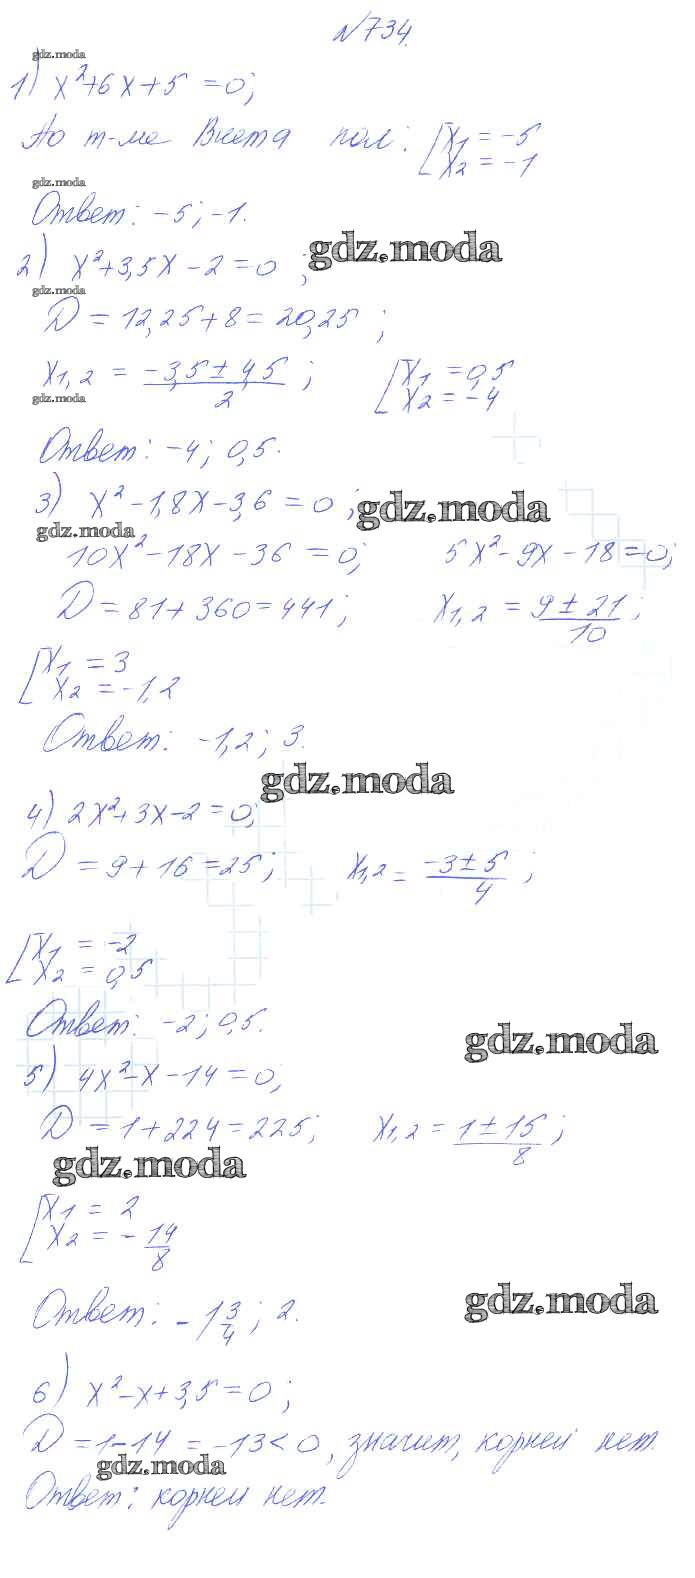 №734.
gdz.moda
1) x²+6x+5=0;
По т-ме Виета пол: [x₁ = -5
x₂ = -1
gdz.moda
Ответ: -5; -1.
gdz.moda
2) x²+3,5x-2=0;
gdz.moda
D = 12,25+8=20,25;
x₁,₂ = (-3,5±4,5)/2; [x₁ = 0,5
x₂ = -4
gdz.moda
Ответ: -4; 0,5.
3) x²-1,8x-3,6=0;
gdz.moda
gdz.moda
10x²-18x-36=0; 5x²-9x-18=0;
D=81+360=441; x₁,₂ = (9±21)/10;
[x₁ = 3
x₂ = -1,2
Ответ: -1,2; 3.
gdz.moda
4) 2x²+3x-2=0;
D=9+16=25; x₁,₂ = (-3±5)/4;
[x₁ = -2
x₂ = 0,5
Ответ: -2; 0,5.
gdz.moda
5) 4x²-x-14=0;
D=1+224=225; x₁,₂ = (1±15)/8;
gdz.moda
[x₁ = 2
x₂ = -14/8
gdz.moda
Ответ: -1 3/4; 2.
6) x²-x+3,5=0;
D=1-14=-13<0, значит, корней нет.
gdz.moda
Ответ: корней нет.